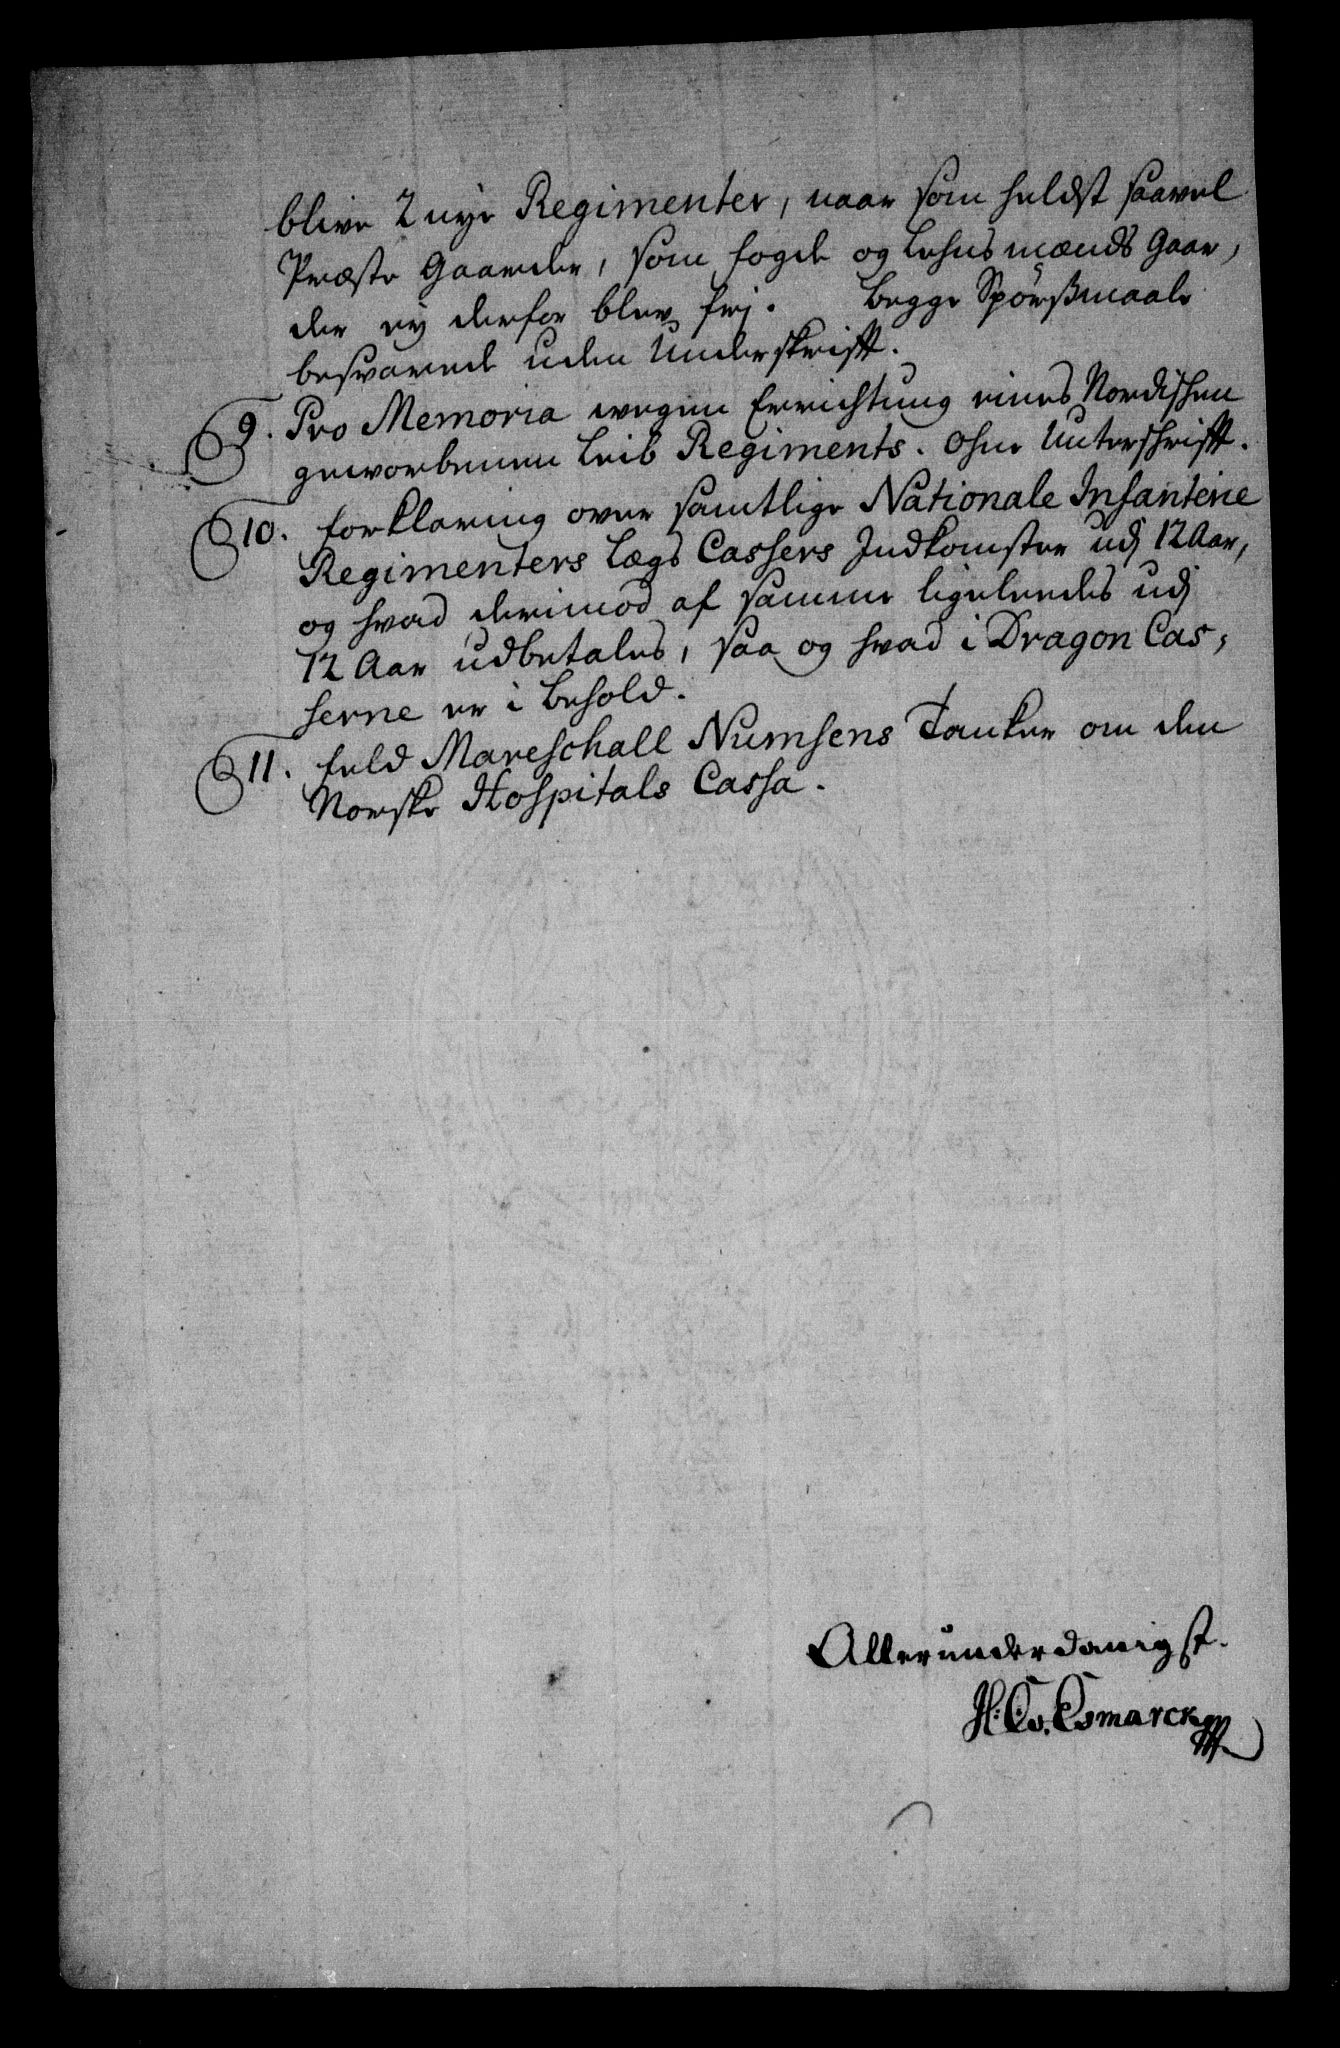 blive 2 nye Regimenter, naar som heldst saavel
Præste Gaarder, som foged og Lehnsmænds Gaar,
der ey derfor blev frj. Begge Spörßmaale
besvarede uden Underskrifft.
9. Pro Memoria wegen Errichtung eines Nordischen
geworbenen Leib Regiments. Ohne Unterschrifft.
10. Forklaring over samtlige Nationale Infanterie
Regimenters Lægs Cassers Indkomster udj 12 Aar,
og hvad derimod af samme ligeleedes udj
12 Aar udbetales, saa og hvad i Dragon Cas,
serne er i behold.
11. Feld Mareschall Numsens Tanker om den
Norske Hospitals Cassa.
Allerunderdanigst.
H: Es. Esmarck